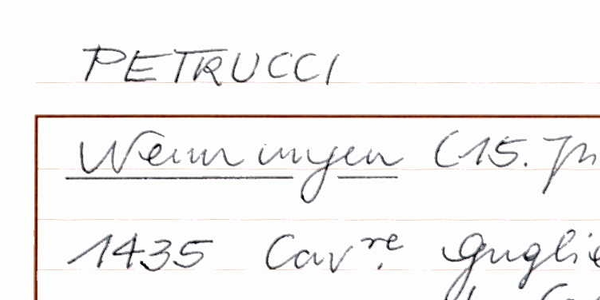 PETRUCCI
Nennungen (15. Jh
1435 Cav.re Guglie